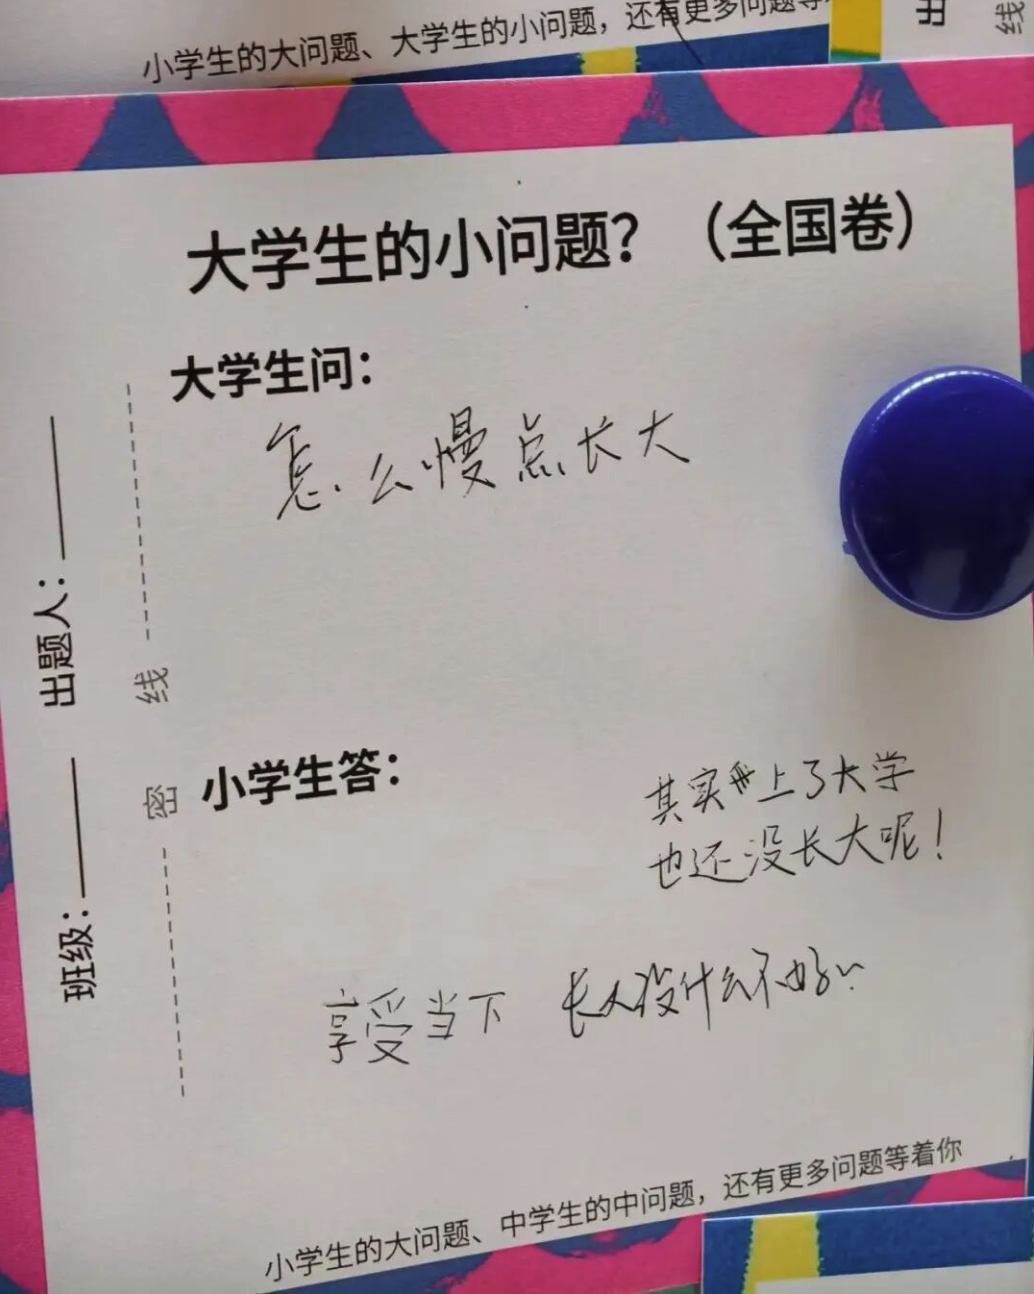 小学生的大问题、大学生的小问题，还有更多问题等
线
大学生的小问题？（全国卷）
大学生问：
怎么慢点长大
出题人：
线
密
班级：
小学生答：
其实 上了大学
也还没长大呢！
享受当下
长大没什么不好
小学生的大问题、中学生的中问题，还有更多问题等着你